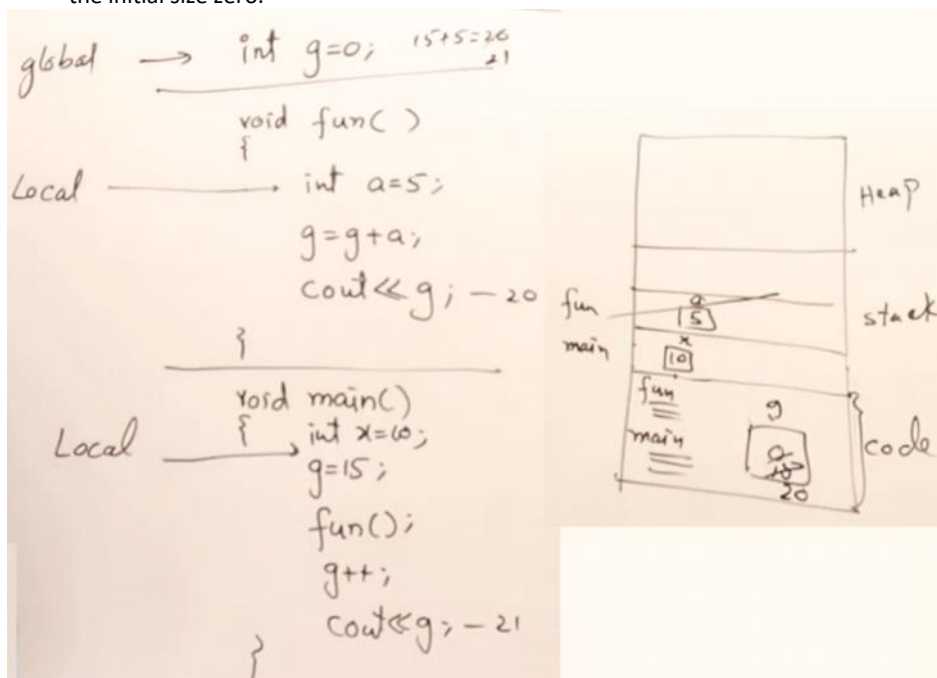 the initial size zero.
global → int g=0; 15+5=20
21
void fun( )
{
Local → int a=5;
g=g+a;
cout<<g; – 20
}
void main()
Local → { int x=10;
g=15;
fun();
g++;
cout<<g; – 21
}
Heap
stack
fun a
5
main x
10
fun
main
g
0
15
20
code